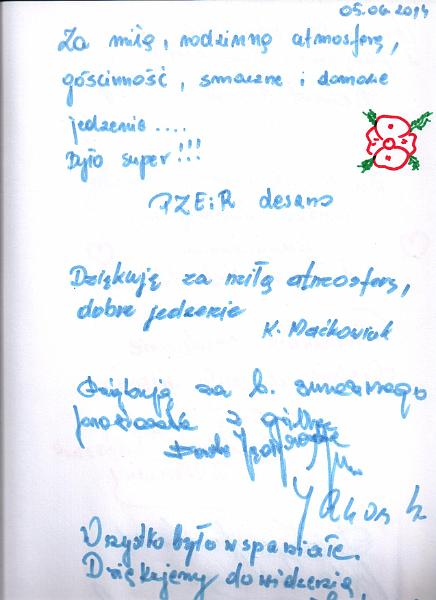 05.06.2014
Za miłą, rodzinną atmosferę,
gościnność, smaczne i domowe
jedzenie ....
Było super!!!
PZEiR
Dziękuję za miłą atmosferę,
dobre jedzenie
K. Maćkowiak
Dziękuję za b. smacznego
Wszystko było wspaniałe.
Dziękujemy do widzenia